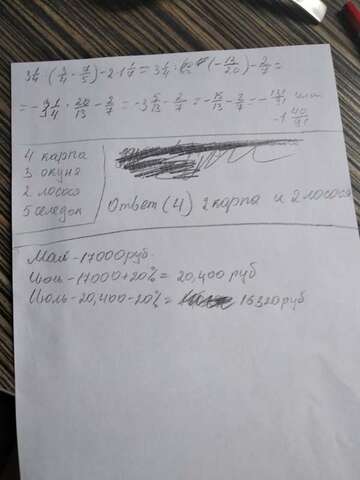 3 1/4 · (3/4 - 7/5) - 2 · 1 1/7 = 3 1/4 · (-13/20) - 2/7 =
= - 3 1/4 · 20/13 - 2/7 = -3 5/13 - 2/7 = - 15/13 - 2/7 = - 131/91 или
-1 40/91
4 карпа
3 окуня
2 лосося
5 селедок
Ответ (4) 2 карпа и 2 лосося
Май - 17000 руб.
Июнь - 17000 + 20% = 20,400 руб
Июль - 20,400 - 20% = 16320 руб